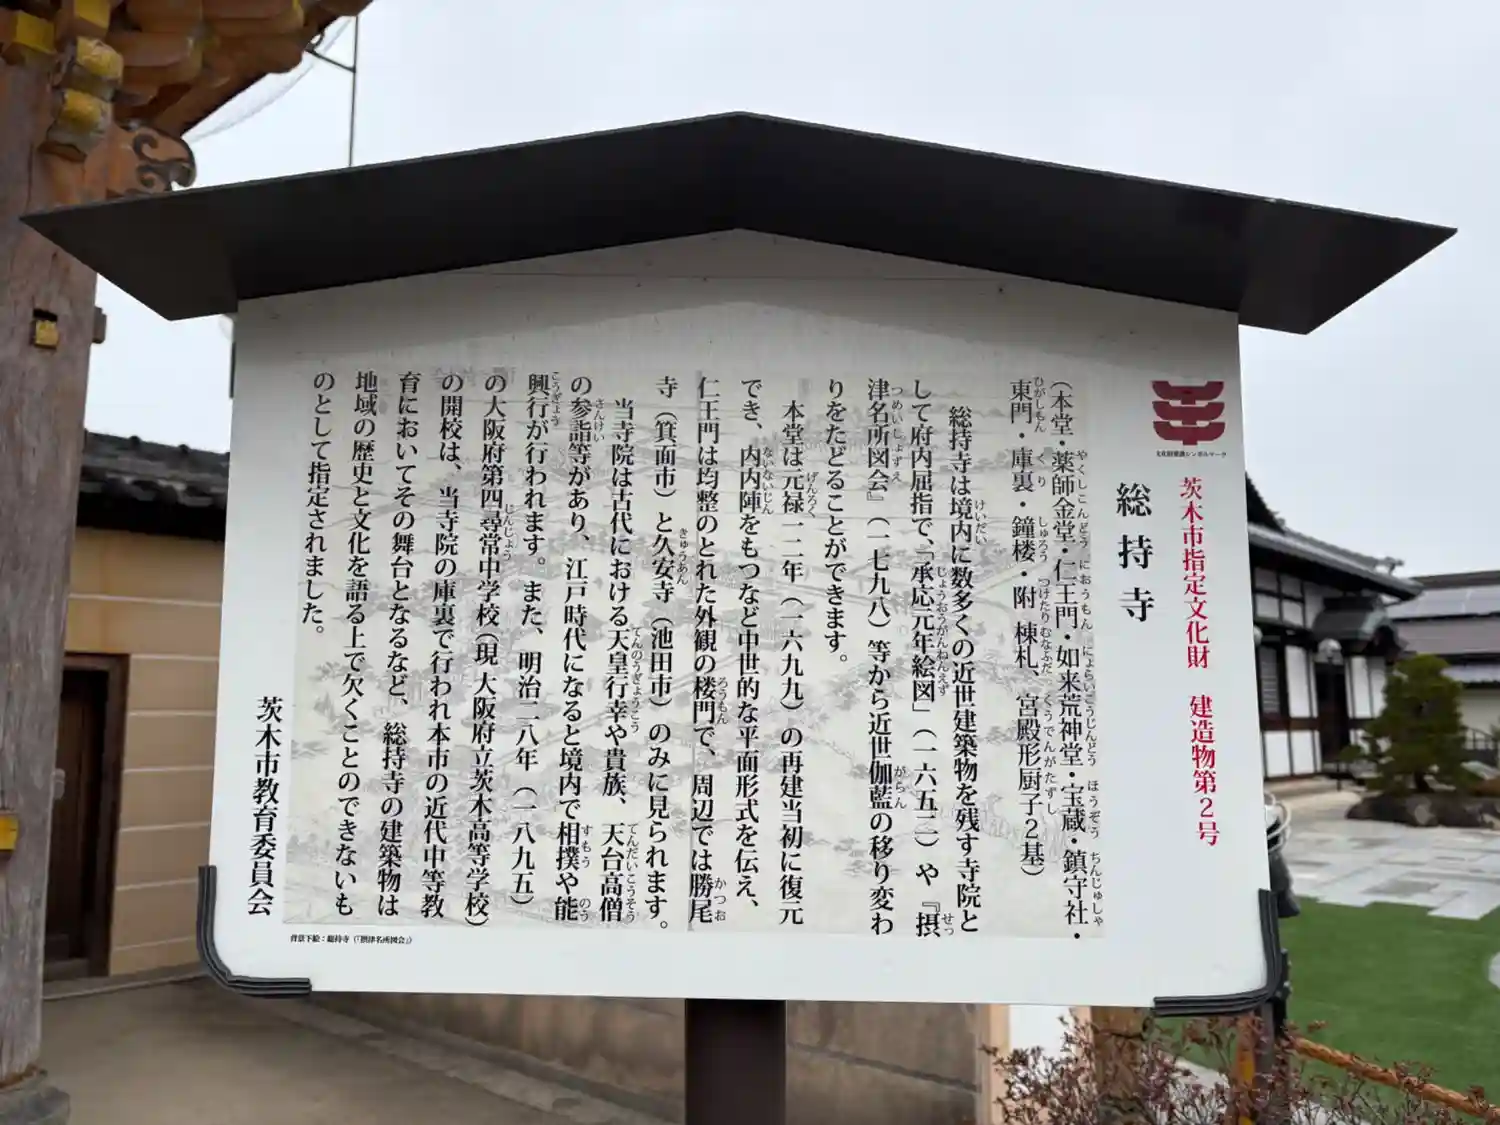 文化財愛護シンボルマーク
茨木市指定文化財　建造物第2号
総持寺
（本堂・薬師金堂・仁王門・如来荒神堂・宝蔵・鎮守社・
東門・庫裏・鐘楼・附 棟札、宮殿形厨子2基）
総持寺は境内に数多くの近世建築物を残す寺院と
して府内屈指で、「承応元年絵図」（一六五二）や『摂
津名所図会』（一七九八）等から近世伽藍の移り変わ
りをたどることができます。
本堂は元禄一二年（一六九九）の再建当初に復元
でき、内内陣をもつなど中世的な平面形式を伝え、
仁王門は均整のとれた外観の楼門で、周辺では勝尾
寺（箕面市）と久安寺（池田市）のみに見られます。
当寺院は古代における天皇行幸や貴族、天台高僧
の参詣等があり、江戸時代になると境内で相撲や能
興行が行われます。また、明治二八年（一八九五）
の大阪府第四尋常中学校（現 大阪府立茨木高等学校）
の開校は、当寺院の庫裏で行われ本市の近代中等教
育においてその舞台となるなど、総持寺の建築物は
地域の歴史と文化を語る上で欠くことのできないも
のとして指定されました。
茨木市教育委員会
背景下絵：総持寺（『摂津名所図会』）